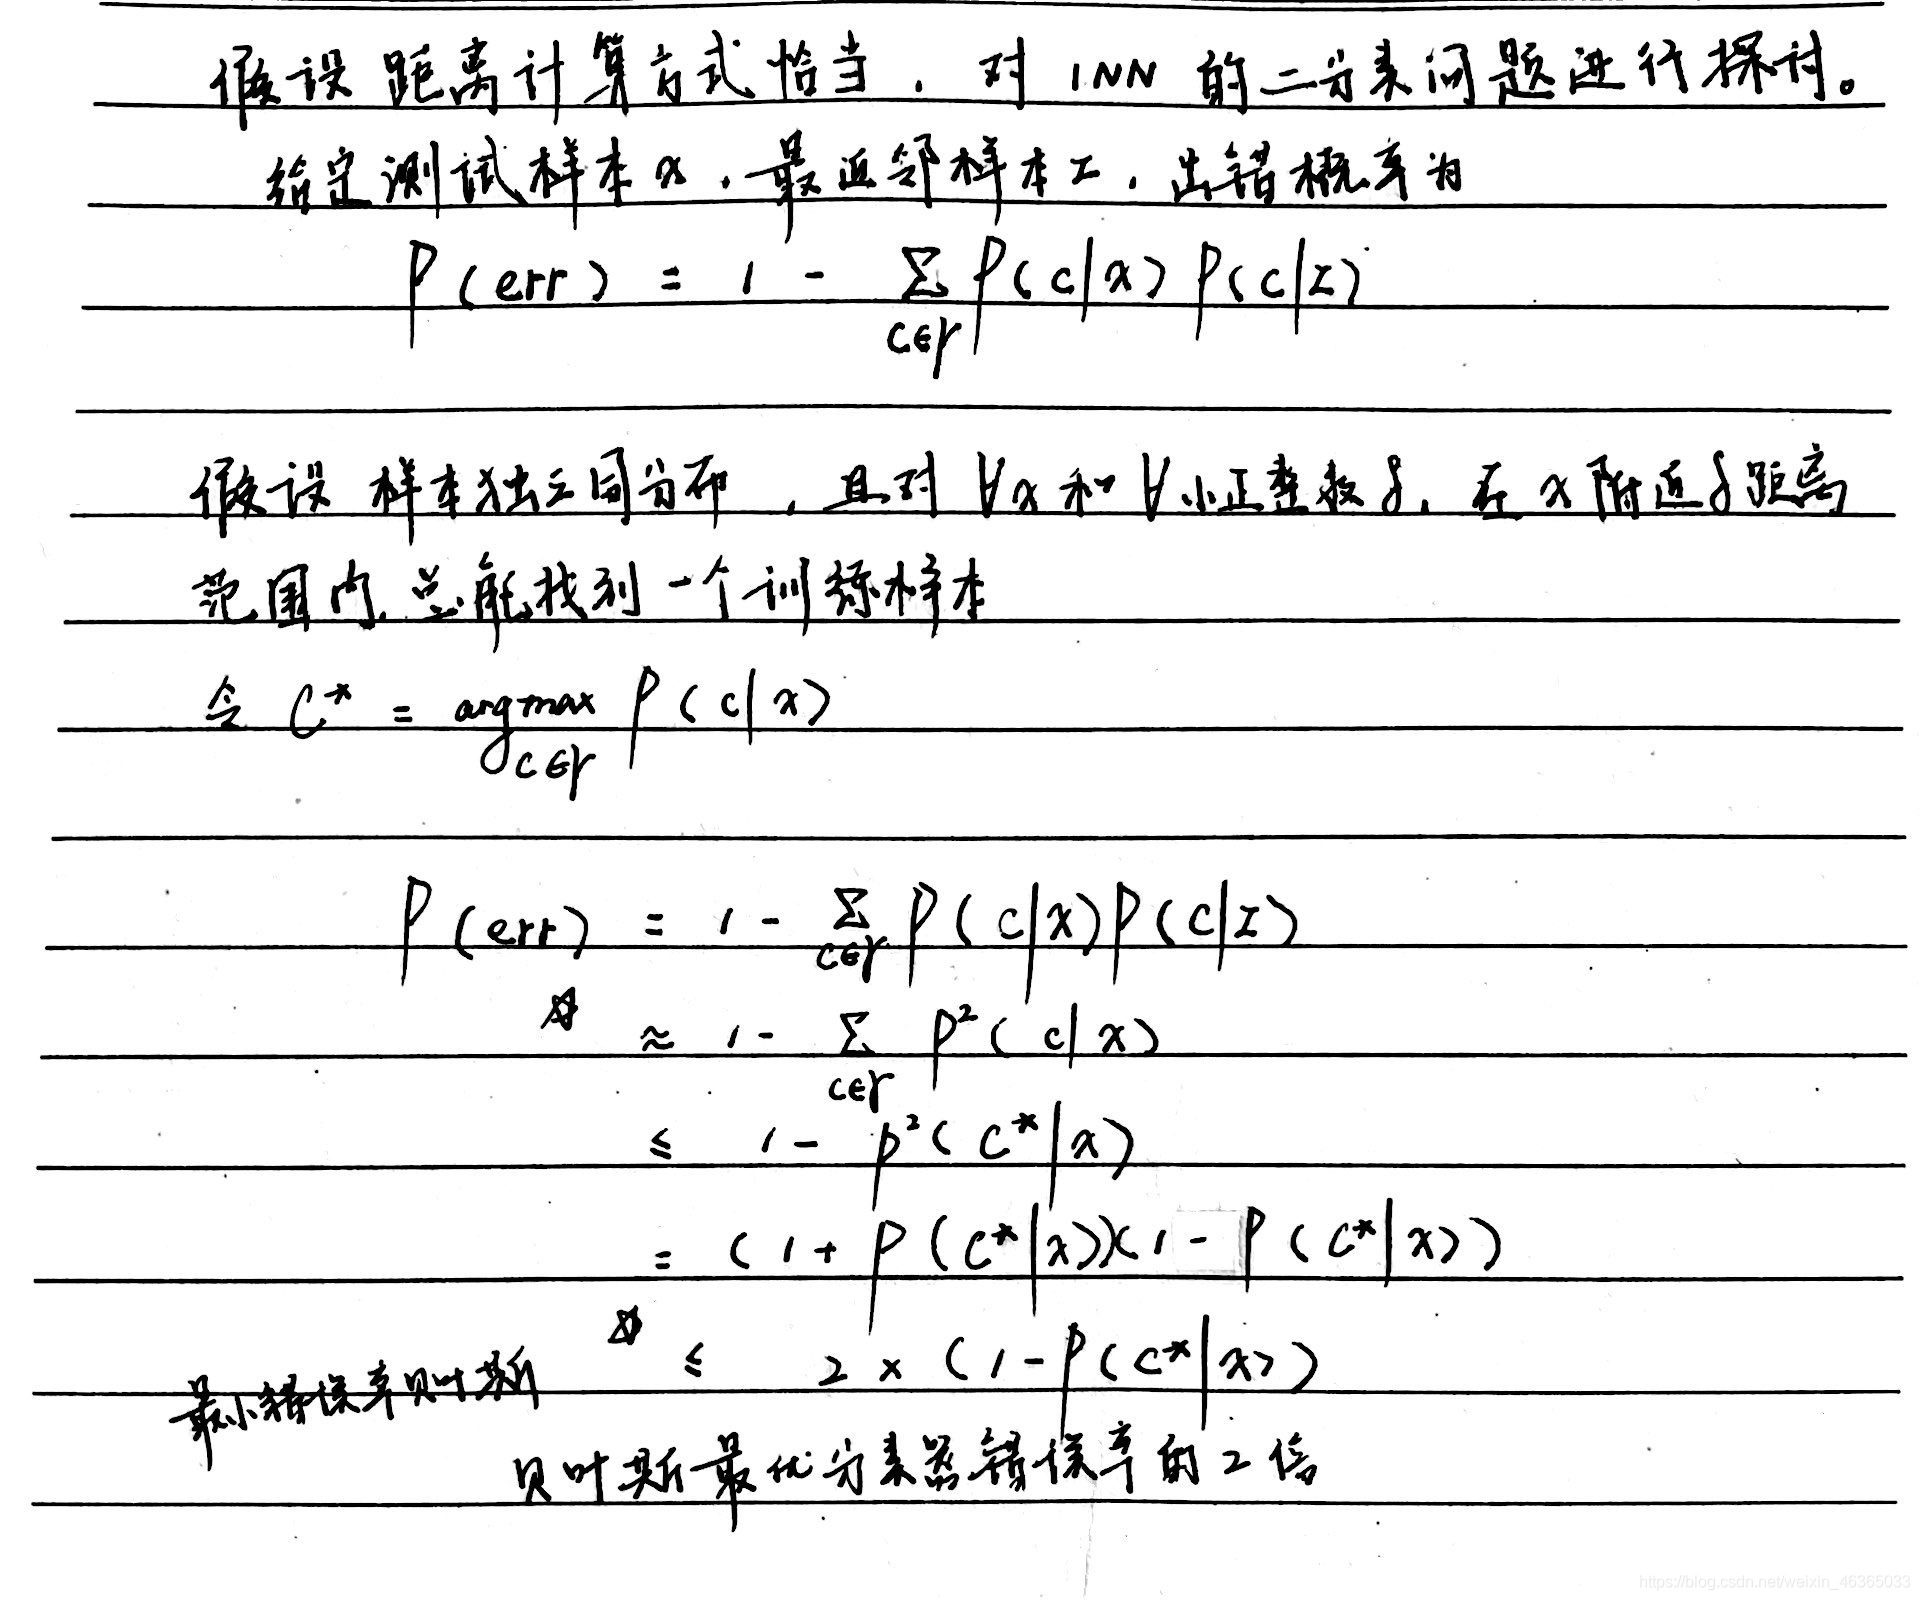 假设距离计算方式恰当，对 1NN 的二分类问题进行探讨。
给定测试样本 x，最近邻样本 z，出错概率为
P(err) = 1 - Σ_{c∈Y} P(c|x) P(c|z)
假设样本独立同分布，且对 ∀x 和 ∀小正整数 δ，在 x 附近 δ 距离
范围内总能找到一个训练样本
令 C* = argmax_{c∈Y} P(c|x)
P(err) = 1 - Σ_{c∈Y} P(c|x) P(c|z)
☆ ≈ 1 - Σ_{c∈Y} P²(c|x)
≤ 1 - P²(C*|x)
= (1 + P(C*|x))(1 - P(C*|x))
☆ ≤ 2 × (1 - P(C*|x))
最小错误率贝叶斯
贝叶斯最优分类器错误率的 2 倍
https://blog.csdn.net/weixin_46365033